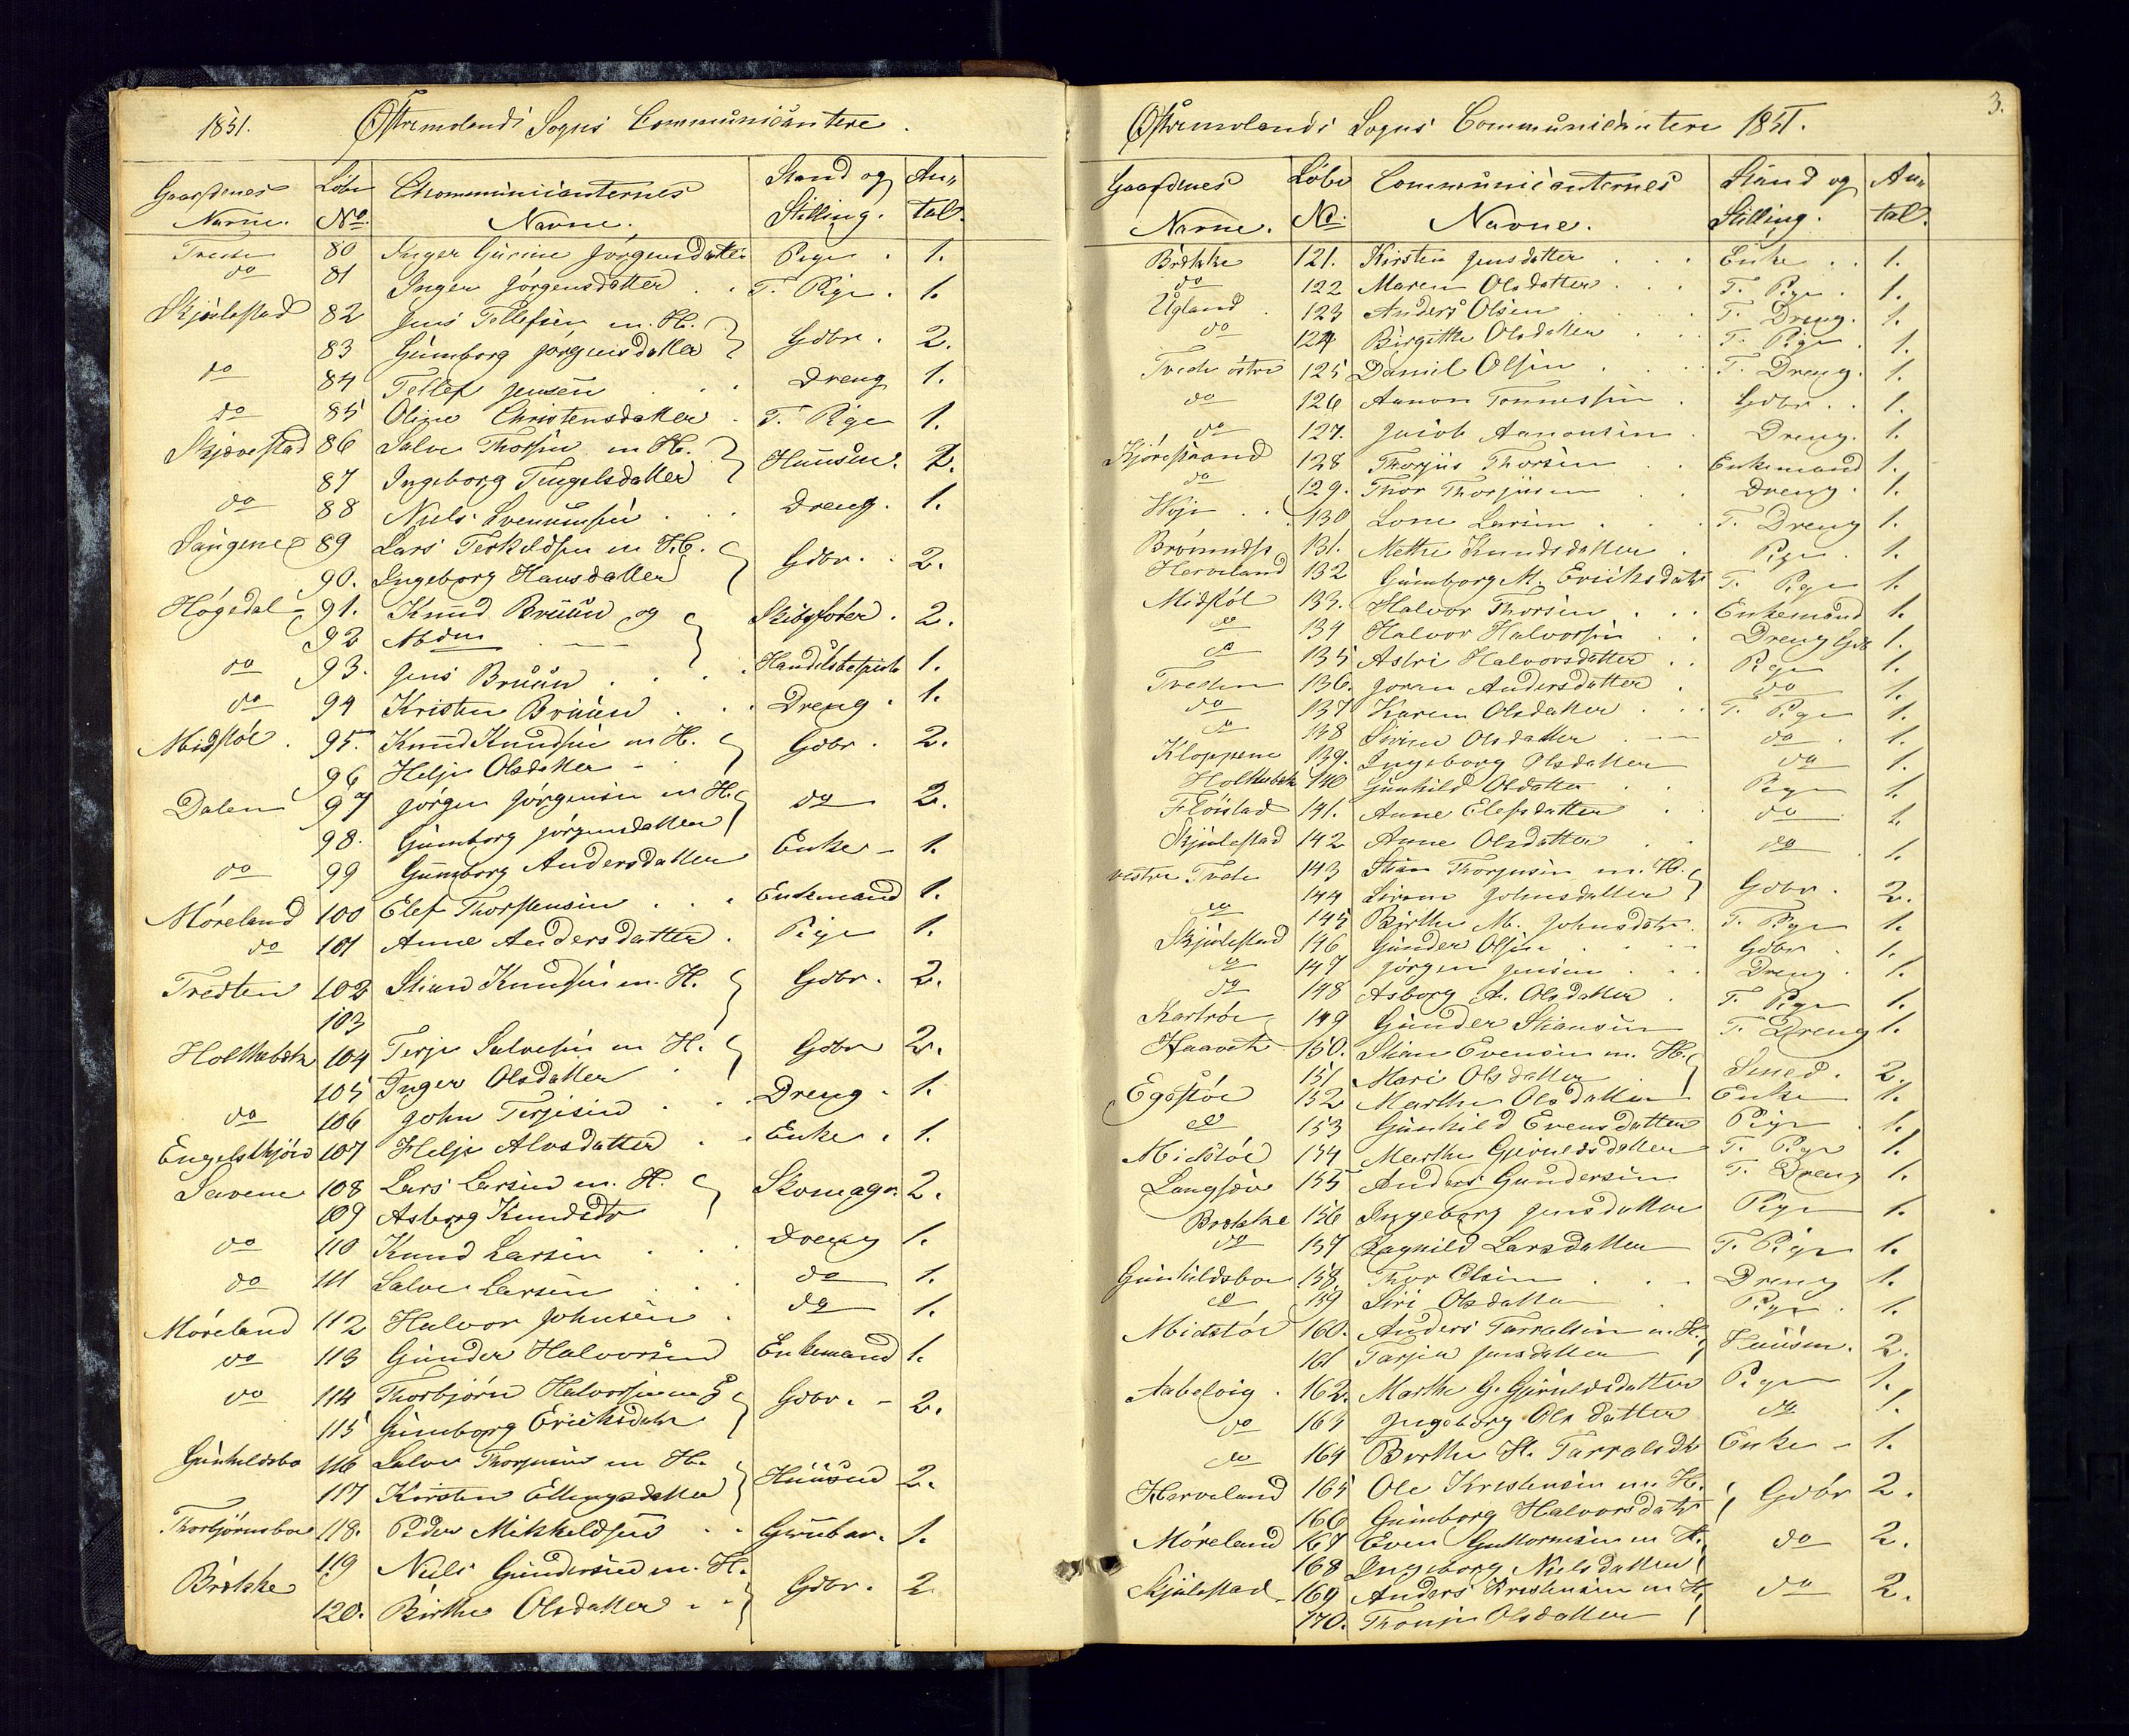 1851. Østremolands Sogns Communicantere.
Gaardenes Navne. Løbe No. Communicanternes Navne. Stand og Stilling. Antal.
80 Inger Gurine Jørgensdatter Pige. 1.
do 81 Inger Jørgensdatter T. Pige. 1.
Skjulestad 82 Jens Tellefsen m. H.
83 Gunborg Jørgensdatter Gdbr. 2.
do 84 Tellef Jensen Dreng 1.
do 85 Oline Christensdatter T. Pige 1.
Skjævestad 86 Salve Thorsen m H.
87 Ingeborg Tengelsdatter Huusm. 2.
do 88 Niels Svenumsen Dreng. 1.
Sangene 89 Lars Terkeldsen m H.
90. Ingeborg Hansdatter Gdbr. 2.
Høgedal 91. Knud Bruun og Skibsfører. 2.
92 Mdm
do 93. Jens Bruun Handelsbetjent 1.
do 94 Kristen Bruun Dreng. 1.
Midstøl 95. Knud Knudsen m H. Gdbr. 2.
96 Helje Olsdatter
Dalen 97 Jørgen Jørgensen m H. do 2.
98. Gunborg Jørgensdatter
do 99 Gunborg Andersdatter Enke 1.
Møreland 100 Elef Thorstensen Enkemand 1.
do 101 Anne Andersdatter. Pige 1.
Tvedten 102 Stian Knudsen m. H. Gdbr. 2.
103
Holtebæk 104 Terje Salvesen m H. Gdbr 2.
105 Inger Olsdatter
do 106 John Terjesen Dreng. 1.
Engelskjøn 107 Helje Alvsdatter Enke. 1.
Savene 108 Lars Larsen m. H. Skomager. 2.
109 Asborg Knudsdtr
do 110 Knud Larsen Dreng 1.
do 111 Salve Larsen do 1.
Møreland 112 Halvor Johnsen do 1.
do 113 Gunder Halvorsen Enkemand 1.
do 114 Thorbjørn Halvorsen m H Gdbr. 2.
115 Gunborg Eriksdatr
Gunhildsbo 116 Salve Thorjusen m H.
117 Kirsten Ellingsdatter Huusm 2.
Thorbjørnsboe 118. Peder Mikkeldsen 1.
119 Niels Gundersen m. H.
Brække 120. Birthe Olsdatter Gdbr. 2
3.
Østremolands Sogns Communicantere 1851.
Gaardenes Navne. Løbe No. Communicanternes Navne. Stand og Stilling. Antal.
Brække 121. Kirsten Jensdatter Enke 1.
do 122 Maren Olsdatter T. Pige. 1.
Ugland 123 Anders Olsen T. Dreng. 1.
do 124 Birgithe Olsdatter T. Pige. 1.
Tvede østre 125 Daniel Olsen T. Dreng. 1.
do 126 Aanon Tønnessen Gdbr. 1.
do 127. Jacob Aanonsen Dreng. 1.
Kjørestrand 128 Thorjus Thorsen Enkemand 1.
do 129. Thor Thorjusen Dreng. 1.
130 Lone Larsen T. Dreng 1.
131. Methe Knudsdatter Pige. 1.
Herveland 132 Gunborg M. Eriksdatr T. Pige 1.
Midstøl 133. Halvor Thorsen Enkemand 1.
do 134 Halvor Halvorsen Dreng Gdb 1.
do 135 Astri Halvorsdatter Pige 1.
Tvedten 136. Joran Andersdatter do 1.
do 137 Karen Olsdatter T. Pige 1.
do 138 Olsdatter do 1.
Kloppene 139. Ingeborg Olsdatter do 1.
Holtebæk 140 Gunhild Olsdatter Pige 1.
Fløistad 141. Anne Elefsdatter do 1.
Skjulestad 142 Anne Olsdatter do 1.
vestre Tvede 143 Stian Thorjusen m. H.
144 Johnsdatter Gdbr. 2.
do 145 Birthe M. Johnsdatr T. Pige 1.
Skjulestad 146 Gunder Olsen Gdbr 1.
do 147 Jørgen Jensen Dreng. 1.
do 148 Asborg A. Olsdatter T. Pige 1.
149 Gunder Stiansen T. Dreng 1.
150. Stian Evensen m. H.
151 Mari Olsdatter Smed. 2.
Egestøl 152 Marthe Olsdatter Enke 1.
do 153 Gunhild Evensdatter Pige 1.
Midstøl 154 Marthe Gjeruldsdatter T. Pige 1.
Langsæv 155 Anders Gundersen T. Dreng 1.
Brække 156 Ingeborg Jensdatter Pige 1.
do 157 Ragnild Larsdatter T. Pige 1.
Gunhildsboe 158. Thor Olsen Dreng 1.
do 159 Siri Olsdatter Pige 1.
Midstøl 160. Anders Tarraldsen m H. Huusm. 2.
161 Tarjer Jensdatter
Aabelvig. 162. Marthe G. Gjeruldsdatter Pige 1.
do 163 Ingeborg Olsdatter do 1.
do 164 Berthe H. Tarraldsdtr Enke 1.
Herveland 165 Ole Kristensen m. H. Gdbr 2.
166 Gunborg Halvorsdatr
Møreland 167 Even Guttormsen m H. do 2.
168 Ingeborg Nielsdatter
Skjulestad 169 Anders Kristensen m H. do 2.
170. Thonje Olsdatter